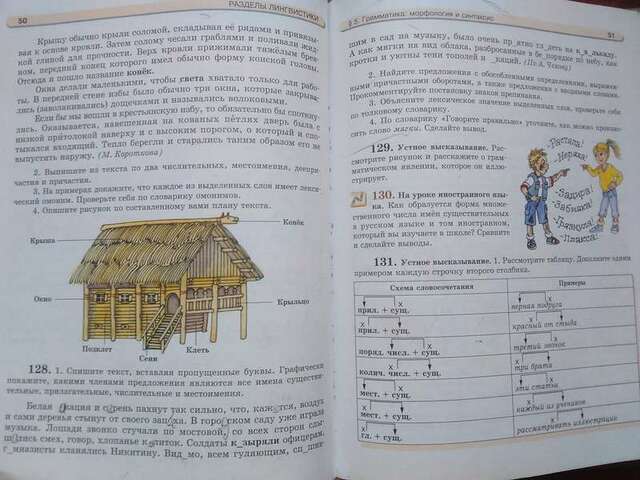 50
РАЗДЕЛЫ ЛИНГВИСТИКИ
Крышу обычно крыли соломой, складывая её рядами и привязы-
вая к основе кровли. Затем солому чесали граблями и поливали жид-
кой глиной для прочности. Верх кровли прижимали тяжёлым брев-
ном, передний конец которого имел обычно форму конской головы.
Отсюда и пошло название конёк.
Окна делали маленькими, чтобы света хватало только для рабо-
ты. В передней стене избы было обычно три окна, которые закрыва-
лись (заволакивались) дощечками и назывались волоковыми.
Если бы мы вошли в крестьянскую избу, то обязательно бы споткну-
лись. Оказывается, навешенная на кованых петлях дверь была с
низкой притолокой наверху и с высоким порогом, о который и спо-
тыкался входящий. Тепло берегли и старались таким образом его не
выпустить наружу. (М. Короткова)
2. Выпишите из текста по два числительных, местоимения, деепри-
частия и причастия.
3. На примерах докажите, что каждое из выделенных слов имеет лекси-
ческий омоним. Проверьте себя по словарику омонимов.
4. Опишите рисунок по составленному вами плану текста.
Конёк
Крыша
Окно
Крыльцо
Подклет
Сени
Клеть
128. 1. Спишите текст, вставляя пропущенные буквы. Графически
покажите, какими членами предложения являются все имена существи-
тельные, прилагательные, числительные и местоимения.
Белая акация и сирень пахнут так сильно, что, кажется, воздух
и сами деревья стынут от своего запаха. В городском саду уже играла
музыка. Лошади звонко стучали по мостовой, со всех сторон слы-
шались смех, говор, хлопанье калиток. Солдаты к_зыряли офицерам,
г_мназисты кланялись Никитину. Вид_мо, всем гуляющим, сп_шив-
§ 5. Грамматика: морфология и синтаксис
51
шим в сад на музыку, было очень пр_ятно гл_деть на к_в_лькаду.
А как мягки на вид облака, разбросанные в бе_порядке по небу, как
кротки и уютны тени тополей и _каций. (По А. Чехову)
2. Найдите предложения с обособленными определениями, выражен-
ными причастными оборотами, а также предложения с вводными словами.
Прокомментируйте постановку знаков препинания.
3. Объясните лексическое значение выделенных слов, проверьте себя
по толковому словарику.
4. По словарику «Говорите правильно» уточните, как можно произно-
сить слово мягки. Сделайте вывод.
129. Устное высказывание. Рас-
смотрите рисунок и расскажите о грам-
матическом явлении, которое он иллю-
стрирует.
-Растяпа!
-Неряха!
-Задира!
-Забияка!
-Грязнуля!
-Плакса!
130. На уроке иностранного язы-
ка. Как образуется форма множе-
ственного числа имён существительных
в русском языке и том иностранном,
который вы изучаете в школе? Сравните
и сделайте выводы.
131. Устное высказывание. 1. Рассмотрите таблицу. Дополните одним
примером каждую строчку второго столбика.
Схема словосочетания
Примеры
х
прил. + сущ.
верная подруга
х
прил. + сущ.
красный от стыда
х
поряд. числ. + сущ.
третий звонок
х
колич. числ. + сущ.
три брата
х
мест. + сущ.
эти статьи
х
мест. + сущ.
каждый из учеников
х
гл. + сущ.
рассматривать иллюстрации